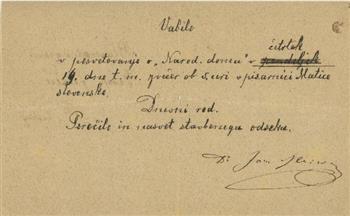 Vabilo
četrtek
v posvetovanje o „Narod. domu" v pondeljek
19. dne t. m. zvečer ob 5. uri v pisarnici Matice
slovenske.
Dnevni red.
Poročilo in nasvet stavbenega odseka.
Dr. Jan